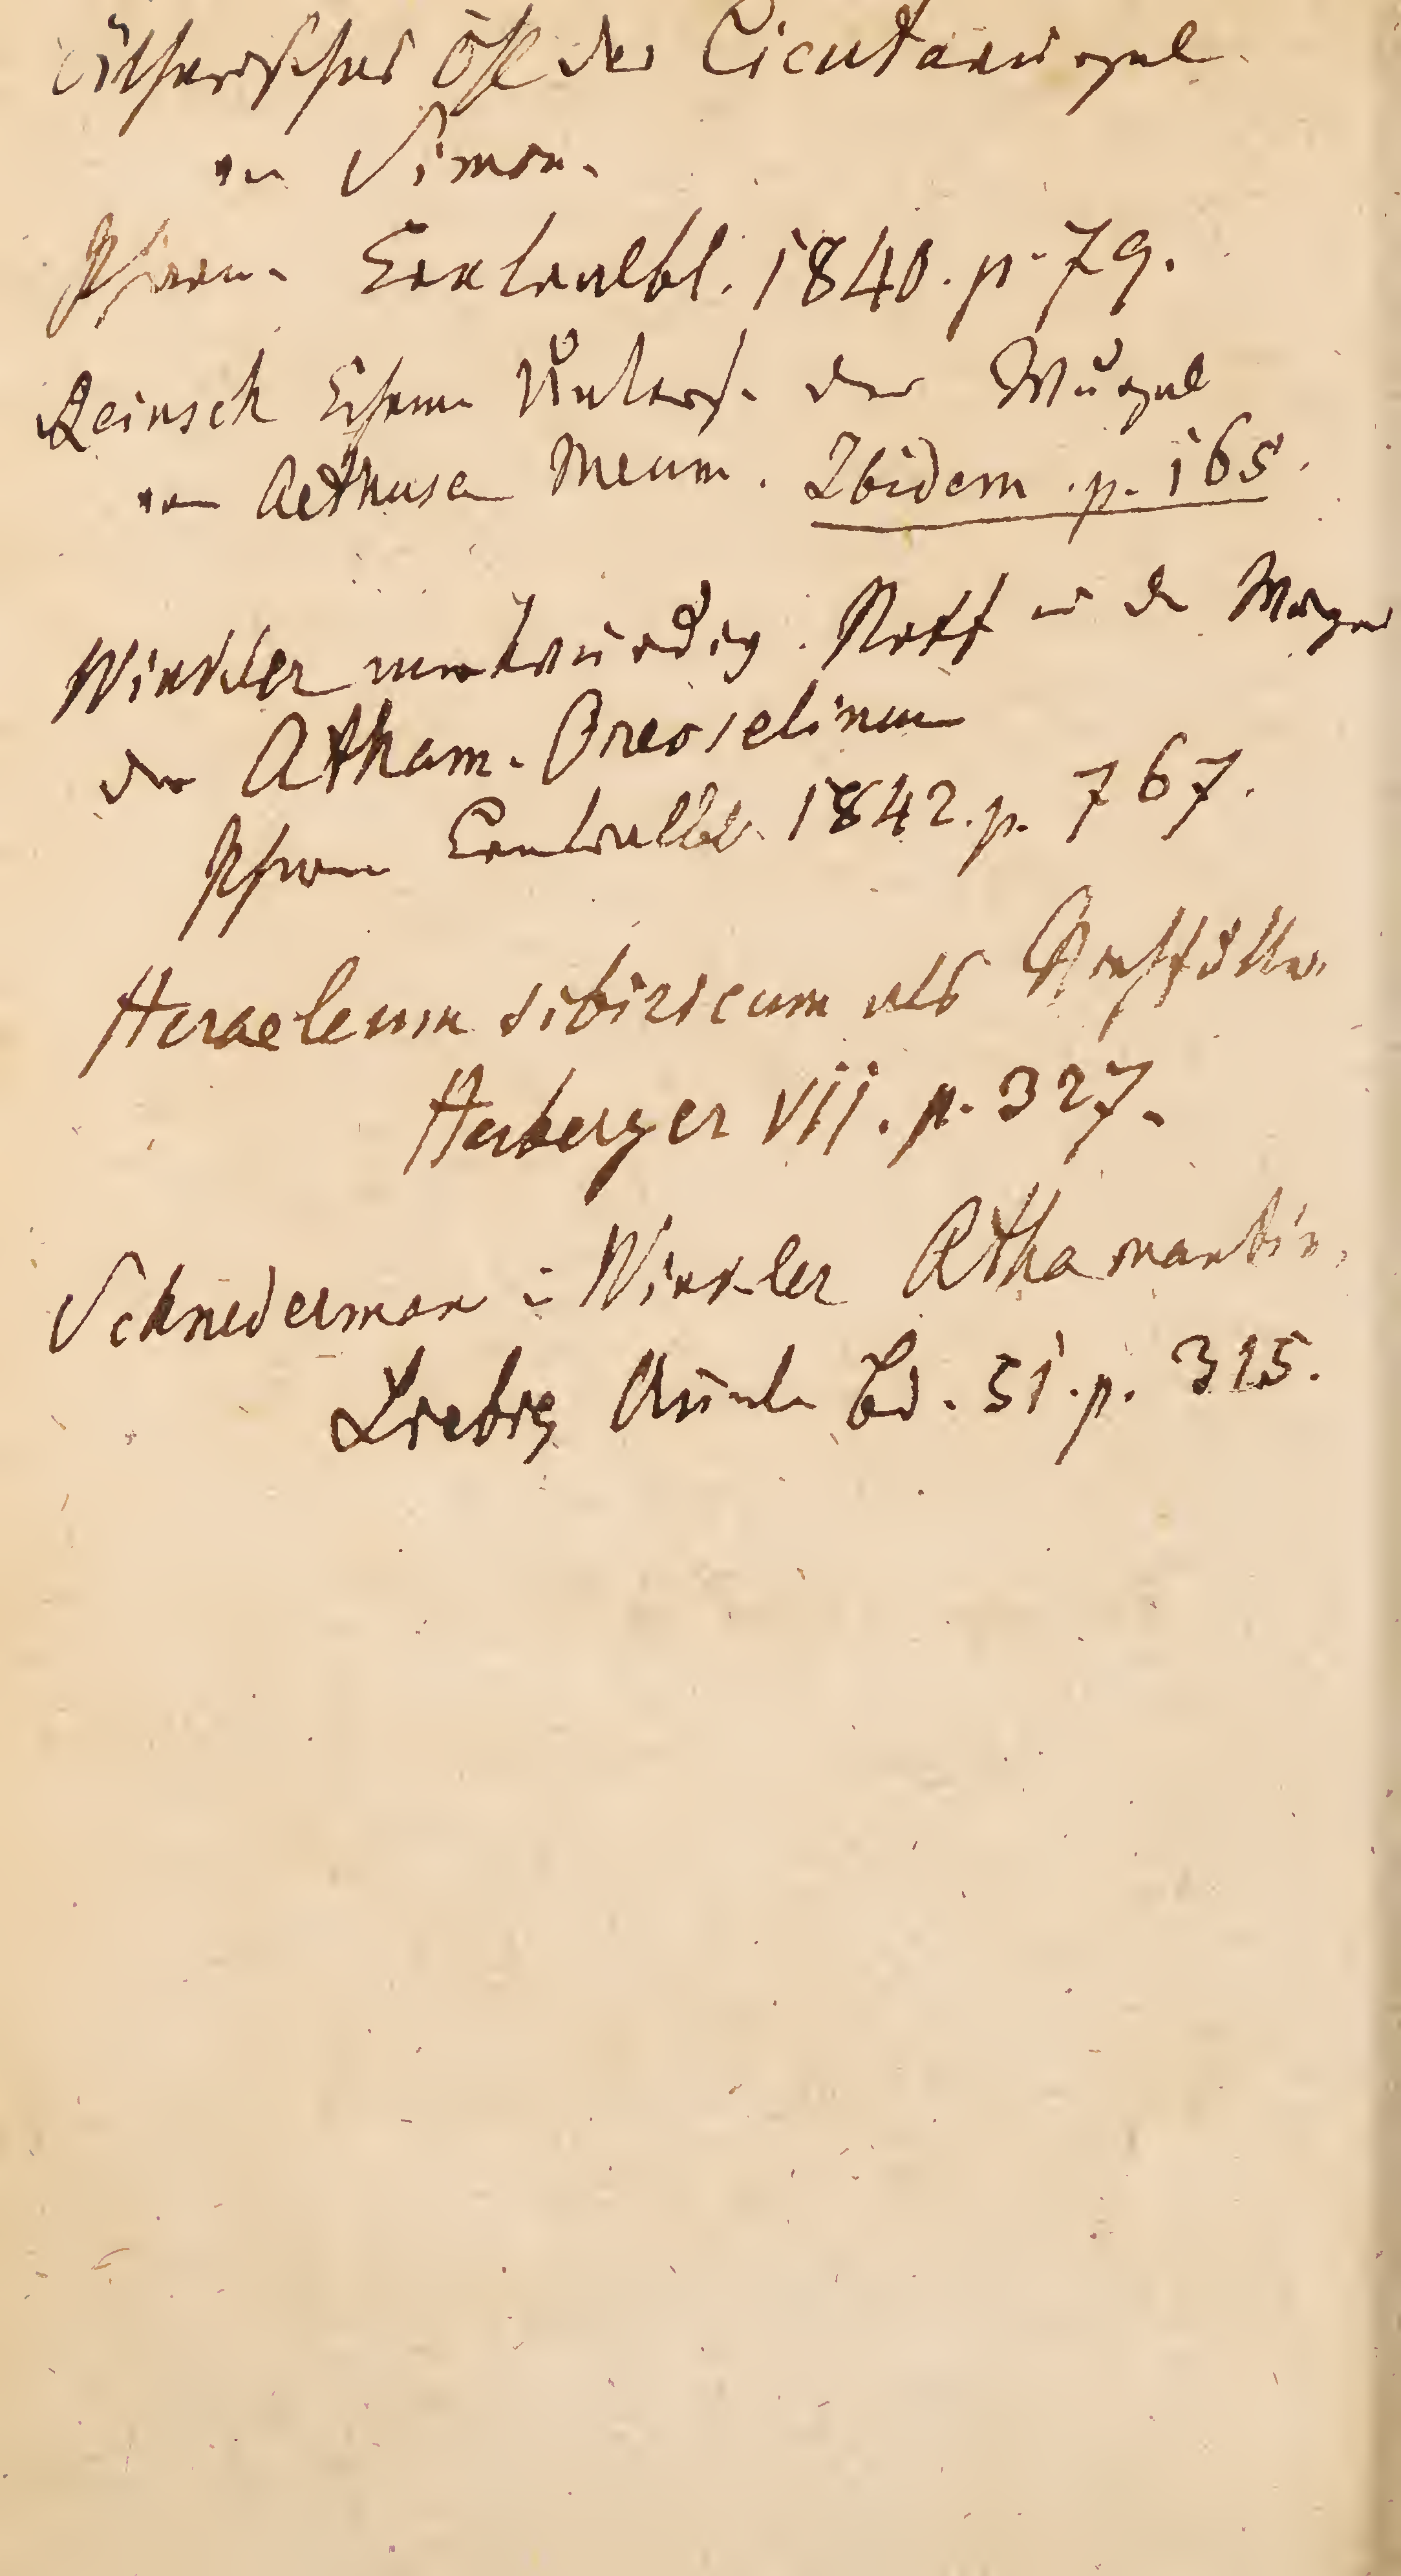 Ätherisches Öhl der Cicutawurzel
von Simon.
Pharm. Centralbl. 1840. p. 79.
Reinsch Chem. Unters. der Wurzel
von Aethusa Meum. Ibidem. p. 165.
Winkler merkwürdig. Stoff in der Wurzel
der Atham. Oreoselinum
Pharm Centralbl. 1842. p. 767.
Heracleum sibiricum als
Herberger VII. p. 327.
Schnedermann u Winkler Athamantin.
Liebig Annal. Bd. 51. p. 315.